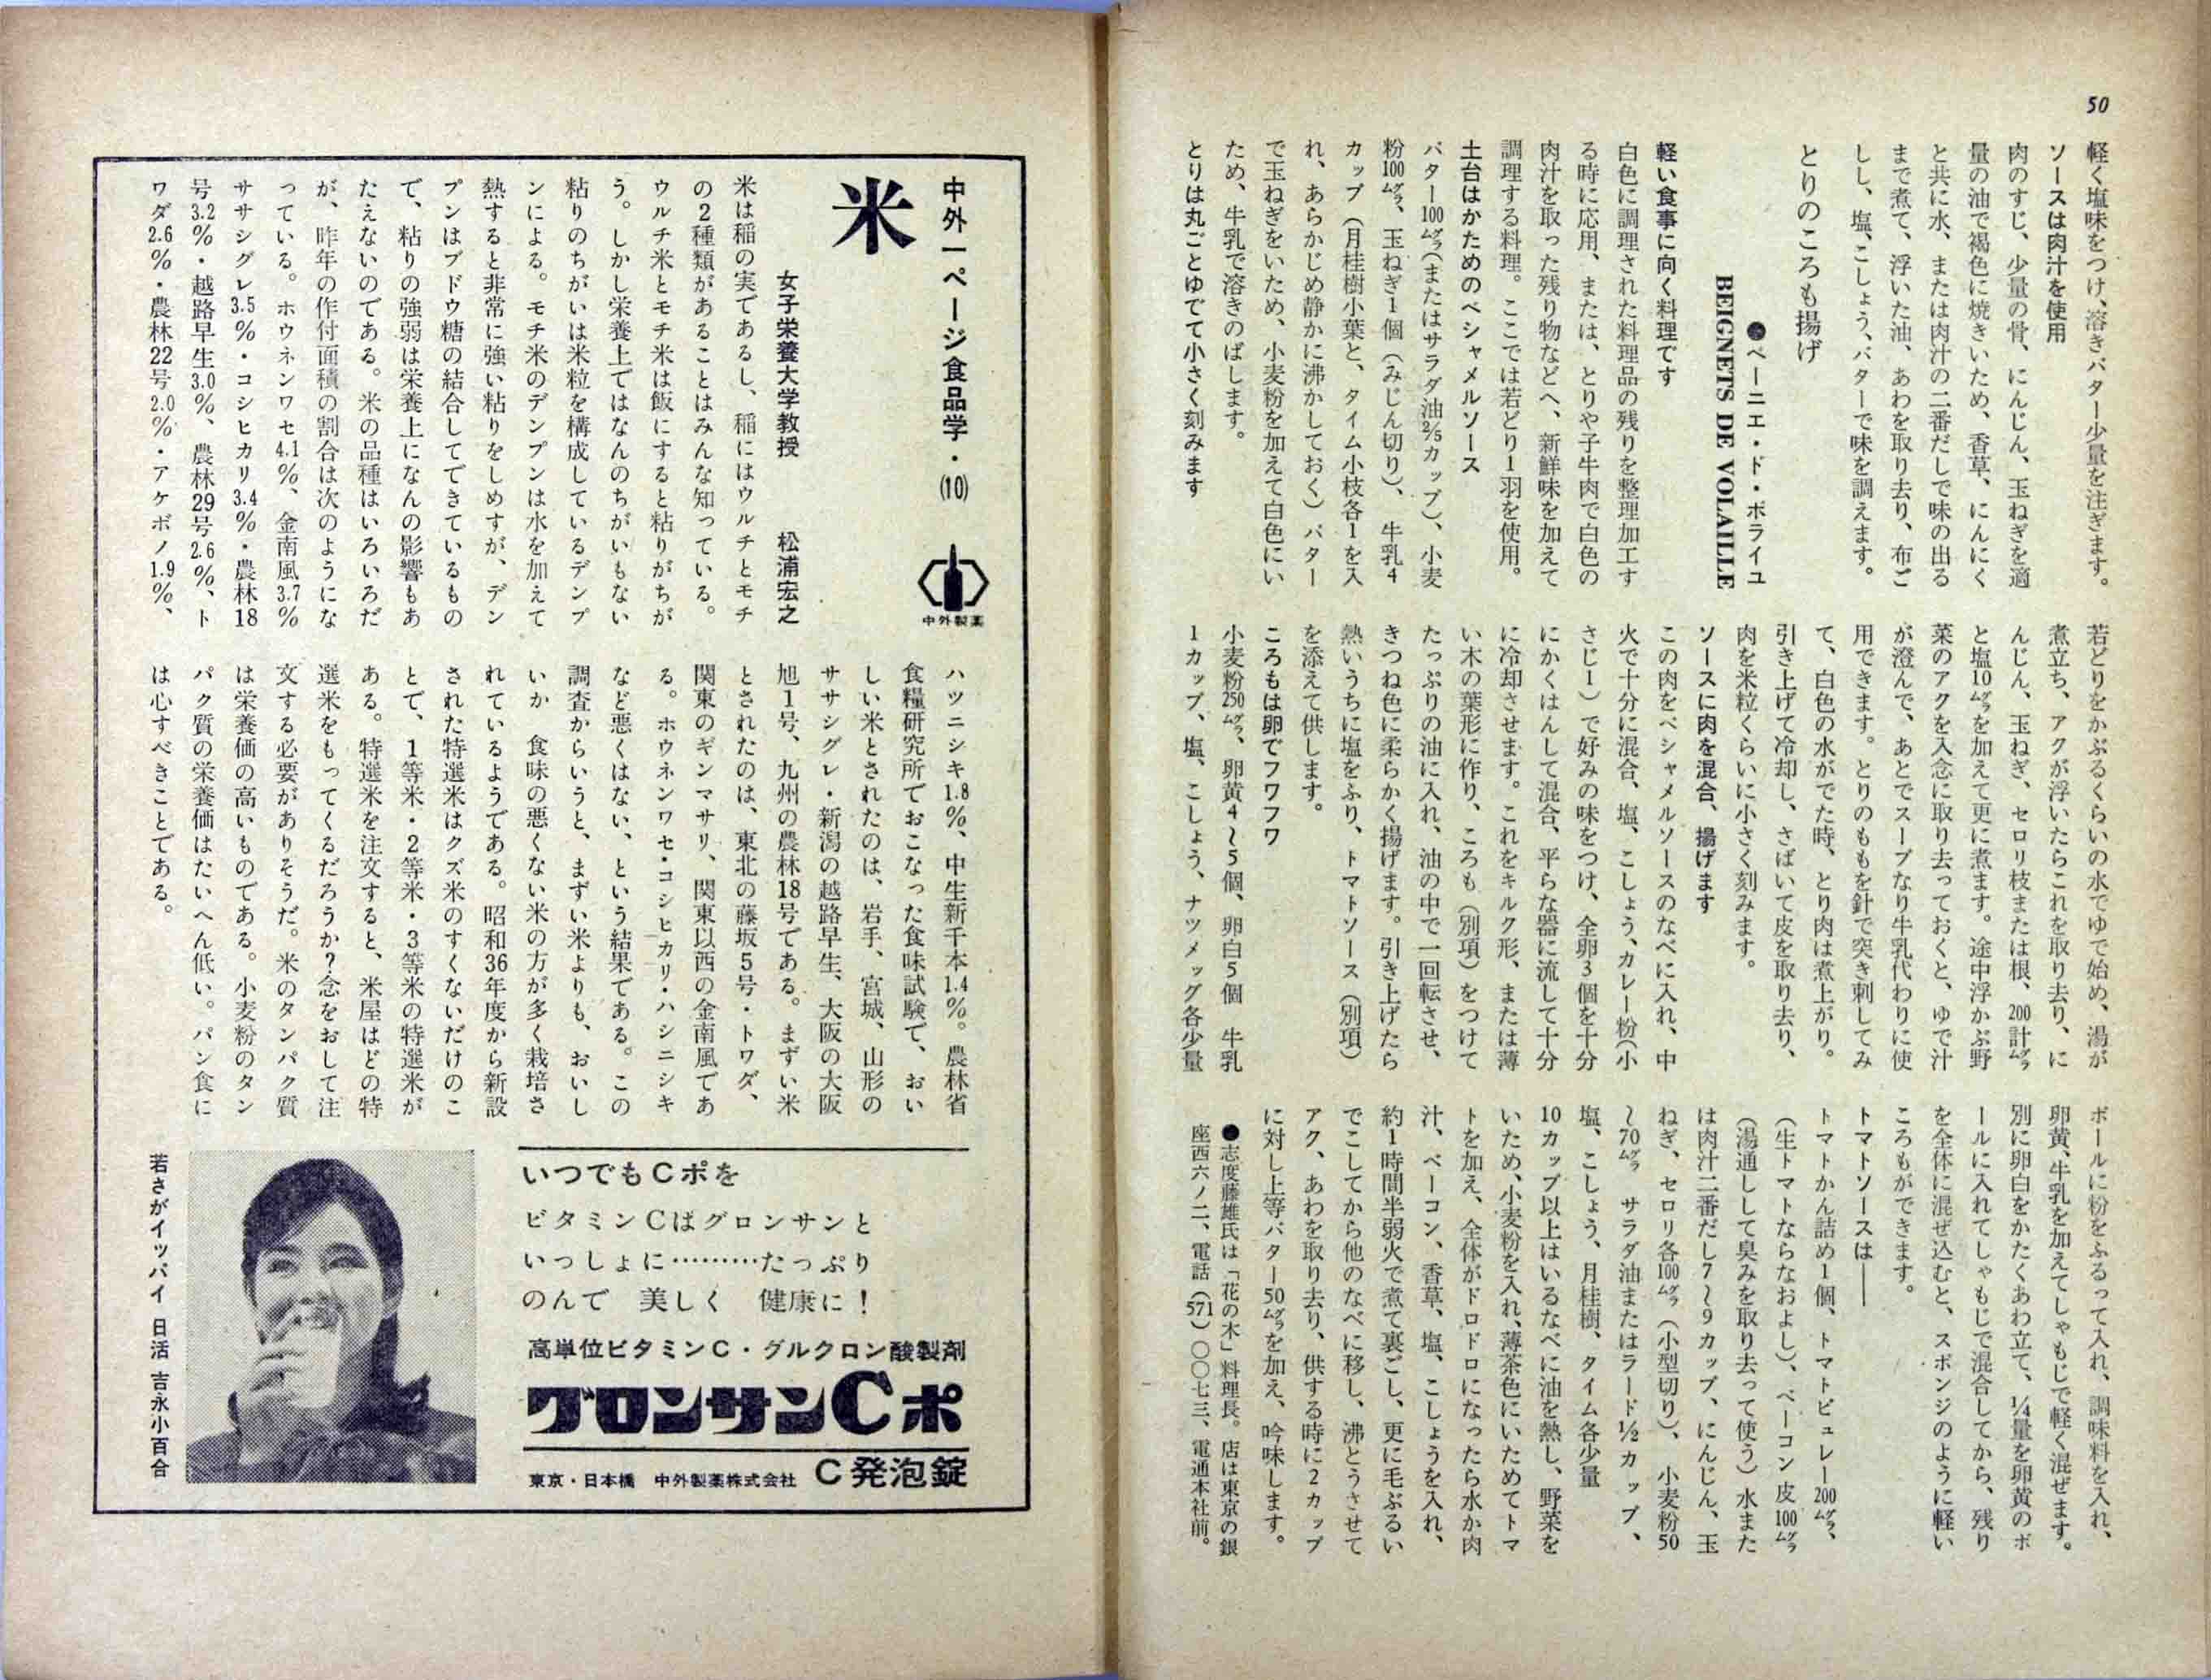 50
軽く塩味をつけ、溶きバター少量を注ぎます。
ソースは肉汁を使用
肉のすじ、少量の骨、にんじん、玉ねぎを適
量の油で褐色に焼きいため、香草、にんにく
と共に水、または肉汁の二番だしで味の出る
まで煮て、浮いた油、あわを取り去り、布ご
しし、塩、こしょう、バターで味を調えます。
とりのころも揚げ
●ベーニエ・ド・ボライユ
BEIGNETS DE VOLAILLE
軽い食事に向く料理です
白色に調理された料理品の残りを整理加工す
る時に応用、または、とりや子牛肉で白色の
肉汁を取った残り物などへ、新鮮味を加えて
調理する料理。ここでは若どり1羽を使用。
土台はかためのベシャメルソース
バター100グラム(またはサラダ油2/5カップ)、小麦
粉100グラム、玉ねぎ1個(みじん切り)、牛乳4
カップ(月桂樹小葉と、タイム小枝各1を入
れ、あらかじめ静かに沸かしておく)バター
で玉ねぎをいため、小麦粉を加えて白色にい
ため、牛乳で溶きのばします。
とりは丸ごとゆでて小さく刻みます
若どりをかぶるくらいの水でゆで始め、湯が
煮立ち、アクが浮いたらこれを取り去り、に
んじん、玉ねぎ、セロリ枝または根、200計グラム
と塩10グラムを加えて更に煮ます。途中浮かぶ野
菜のアクを入念に取り去っておくと、ゆで汁
が澄んで、あとでスープなり牛乳代わりに使
用できます。とりのももを針で突き刺してみ
て、白色の水がでた時、とり肉は煮上がり。
引き上げて冷却し、さばいて皮を取り去り、
肉を米粒くらいに小さく刻みます。
ソースに肉を混合、揚げます
この肉をベシャメルソースのなべに入れ、中
火で十分に混合、塩、こしょう、カレー粉(小
さじ1)で好みの味をつけ、全卵3個を十分
にかくはんして混合、平らな器に流して十分
に冷却させます。これをキルク形、または薄
い木の葉形に作り、ころも(別項)をつけて
たっぷりの油に入れ、油の中で一回転させ、
きつね色に柔らかく揚げます。引き上げたら
熱いうちに塩をふり、トマトソース(別項)
を添えて供します。
ころもは卵でフワフワ
小麦粉250グラム、卵黄4〜5個、卵白5個 牛乳
1カップ、塩、こしょう、ナツメッグ各少量
ボールに粉をふるって入れ、調味料を入れ、
卵黄、牛乳を加えてしゃもじで軽く混ぜます。
別に卵白をかたくあわ立て、1/4量を卵黄のボ
ールに入れてしゃもじで混合してから、残り
を全体に混ぜ込むと、スポンジのように軽い
ころもができます。
トマトソースは――
トマトかん詰め1個、トマトピュレー200グラム、
(生トマトならなおよし)、ベーコン皮100グラム
(湯通しして臭みを取り去って使う)水また
は肉汁二番だし7〜9カップ、にんじん、玉
ねぎ、セロリ各100グラム(小型切り)、小麦粉50
〜70グラム サラダ油またはラード1/2カップ、
塩、こしょう、月桂樹、タイム各少量
10カップ以上はいるなべに油を熱し、野菜を
いため、小麦粉を入れ、薄茶色にいためてトマ
トを加え、全体がドロドロになったら水か肉
汁、ベーコン、香草、塩、こしょうを入れ、
約1時間半弱火で煮て裏ごし、更に毛ぶるい
でこしてから他のなべに移し、沸とうさせて
アク、あわを取り去り、供する時に2カップ
に対し上等バター50グラムを加え、吟味します。
●志度藤雄氏は「花の木」料理長。店は東京の銀
座西六ノ二、電話(571)〇〇七三、電通本社前。
中外一ページ食品学・(10)
中外製薬
米
女子栄養大学教授 松浦宏之
米は稲の実であるし、稲にはウルチとモチ
の2種類があることはみんな知っている。
ウルチ米とモチ米は飯にすると粘りがちが
う。しかし栄養上ではなんのちがいもない
粘りのちがいは米粒を構成しているデンプ
ンによる。モチ米のデンプンは水を加えて
熱すると非常に強い粘りをしめすが、デン
プンはブドウ糖の結合してできているもの
で、粘りの強弱は栄養上になんの影響もあ
たえないのである。米の品種はいろいろだ
が、昨年の作付面積の割合は次のようにな
っている。ホウネンワセ4.1%、金南風3.7%
ササシグレ3.5%・コシヒカリ3.4%・農林18
号3.2%・越路早生3.0%、農林29号2.6%、ト
ワダ2.6%・農林22号2.0%・アケボノ1.9%、
ハツニシキ1.8%、中生新千本1.4%。農林省
食糧研究所でおこなった食味試験で、おい
しい米とされたのは、岩手、宮城、山形の
ササシグレ・新潟の越路早生、大阪の大阪
旭1号、九州の農林18号である。まずい米
とされたのは、東北の藤坂5号・トワダ、
関東のギンマサリ、関東以西の金南風であ
る。ホウネンワセ・コシヒカリ・ハシニシキ
など悪くはない、という結果である。この
調査からいうと、まずい米よりも、おいし
いか 食味の悪くない米の方が多く栽培さ
れているようである。昭和36年度から新設
された特選米はクズ米のすくないだけのこ
とで、1等米・2等米・3等米の特選米が
ある。特選米を注文すると、米屋はどの特
選米をもってくるだろうか?念をおして注
文する必要がありそうだ。米のタンパク質
は栄養価の高いものである。小麦粉のタン
パク質の栄養価はたいへん低い。パン食に
は心すべきことである。
いつでもCポを
ビタミンCはグロンサンと
いっしょに………たっぷり
のんで 美しく 健康に!
高単位ビタミンC・グルクロン酸製剤
グロンサンCポ
C発泡錠
東京・日本橋 中外製薬株式会社
若さがイッパイ 日活 吉永小百合